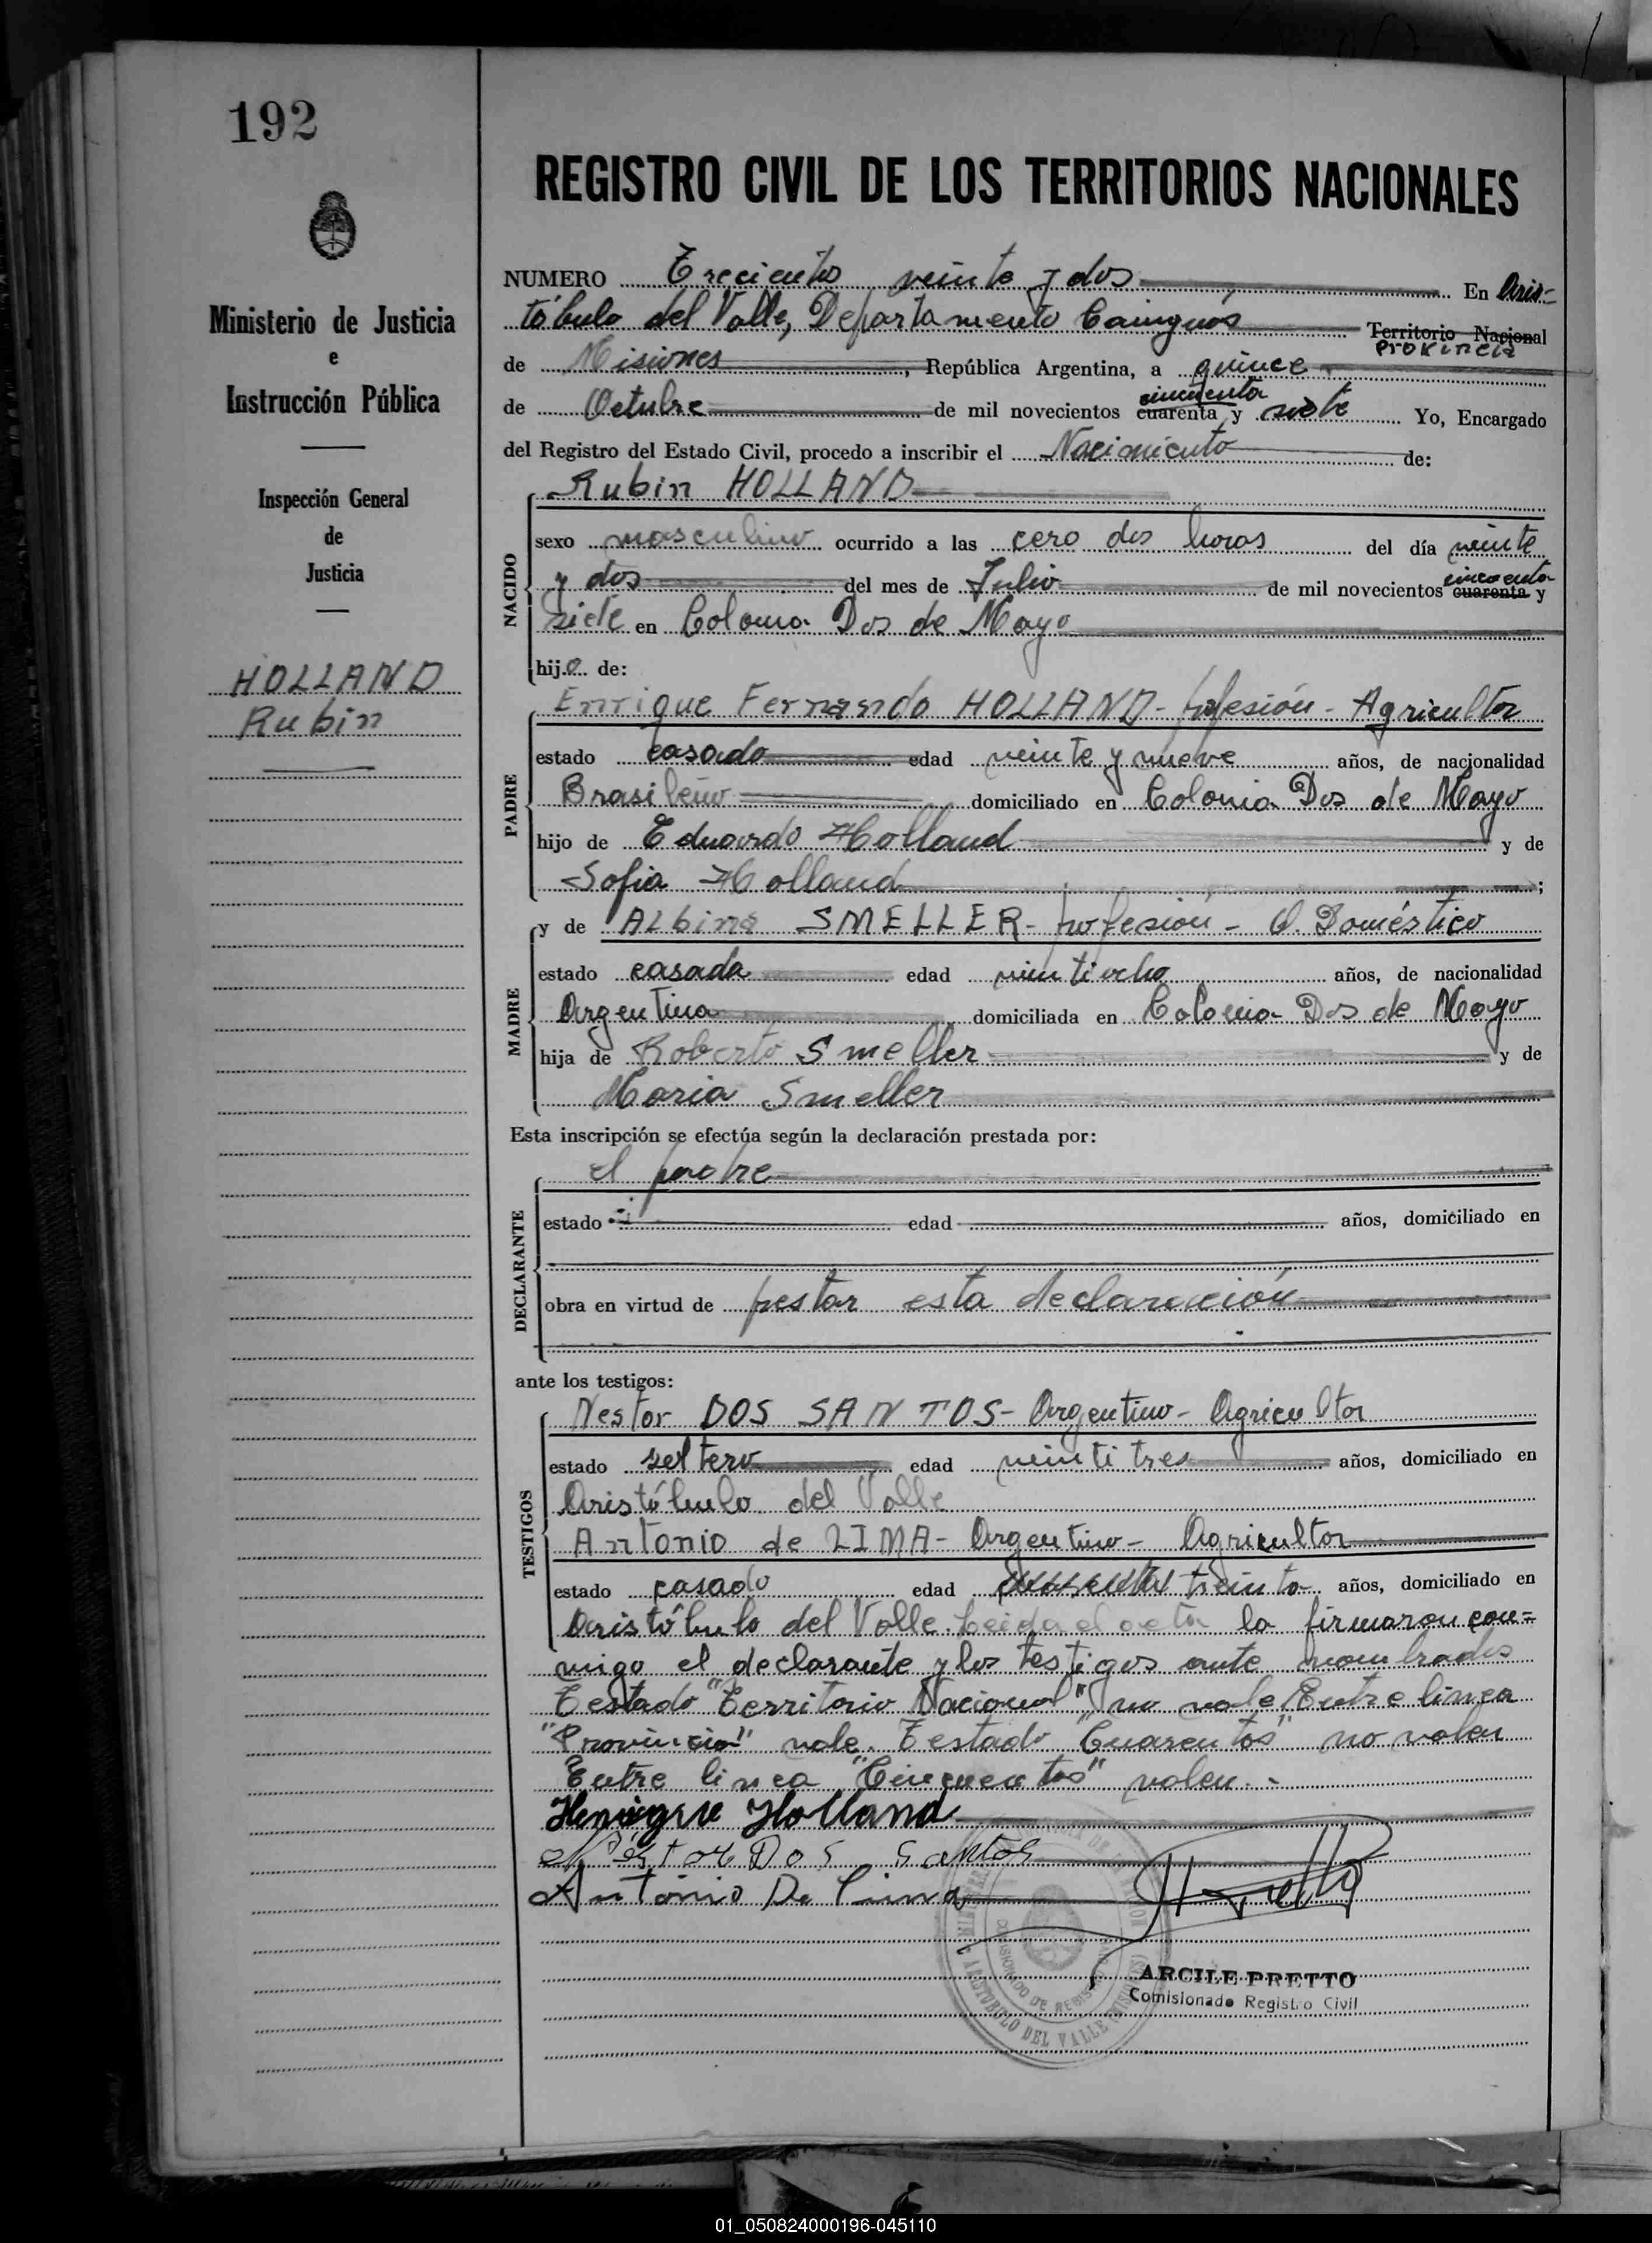 192
Ministerio de Justicia
e
Instrucción Pública
Inspección General
de
Justicia
HOLLAND
Rubin
REGISTRO CIVIL DE LOS TERRITORIOS NACIONALES
NUMERO Trecientos veinte y dos En Aris=
tóbulo del Valle, Departamento Cainguás Territorio Nacional
Provincia
de Misiones, República Argentina, a quince
cincuenta
de Octubre de mil novecientos cuarenta y siete Yo, Encargado
del Registro del Estado Civil, procedo a inscribir el Nacimiento de:
Rubin HOLLAND
NACIDO
sexo masculino ocurrido a las cero dos horas del día veinte
cincuenta
y dos del mes de Julio de mil novecientos cuarenta y
siete en Colonia Dos de Mayo
hijo de:
PADRE
Enrique Fernando HOLLAND - profesión - Agricultor
estado casado edad veinte y nueve años, de nacionalidad
Brasileño domiciliado en Colonia Dos de Mayo
hijo de Eduardo Holland y de
Sofia Holland;
MADRE
y de Albina SMELLER - profesión - Q. Doméstico
estado casada edad veintiocho años, de nacionalidad
Argentina domiciliada en Colonia Dos de Mayo
hija de Roberto Smeller y de
Maria Smeller
Esta inscripción se efectúa según la declaración prestada por:
DECLARANTE
el padre
estado edad años, domiciliado en
obra en virtud de prestar esta declaración
ante los testigos:
TESTIGOS
Nestor DOS SANTOS - Argentino - Agricultor
estado soltero edad veintitres años, domiciliado en
Aristóbulo del Valle
Antonio de LIMA - Argentino - Agricultor
estado casado edad treinta años, domiciliado en
Aristóbulo del Valle. Leida el acta la firmaron con=
migo el declarante y los testigos ante nombrados
Testado "Territorio Nacional" no vale Entre linea
"Provincia" vale. Testado "Cuarentas" no valen
Entre linea "Cincuentas" valen. -
Henrique Holland
Néstor Dos Santos
Antonio De Lima
ARCILE PRETTO
Comisionado Registro Civil
ARISTOBULO DEL VALLE
01_050824000196-045110